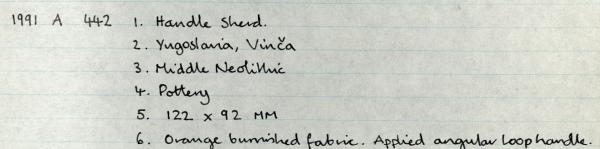 1991 A 442 1. Handle Sherd.
2. Yugoslavia, Vinča
3. Middle Neolithic
4. Pottery
5. 122 x 92 MM
6. Orange burnished fabric. Applied angular loop handle.